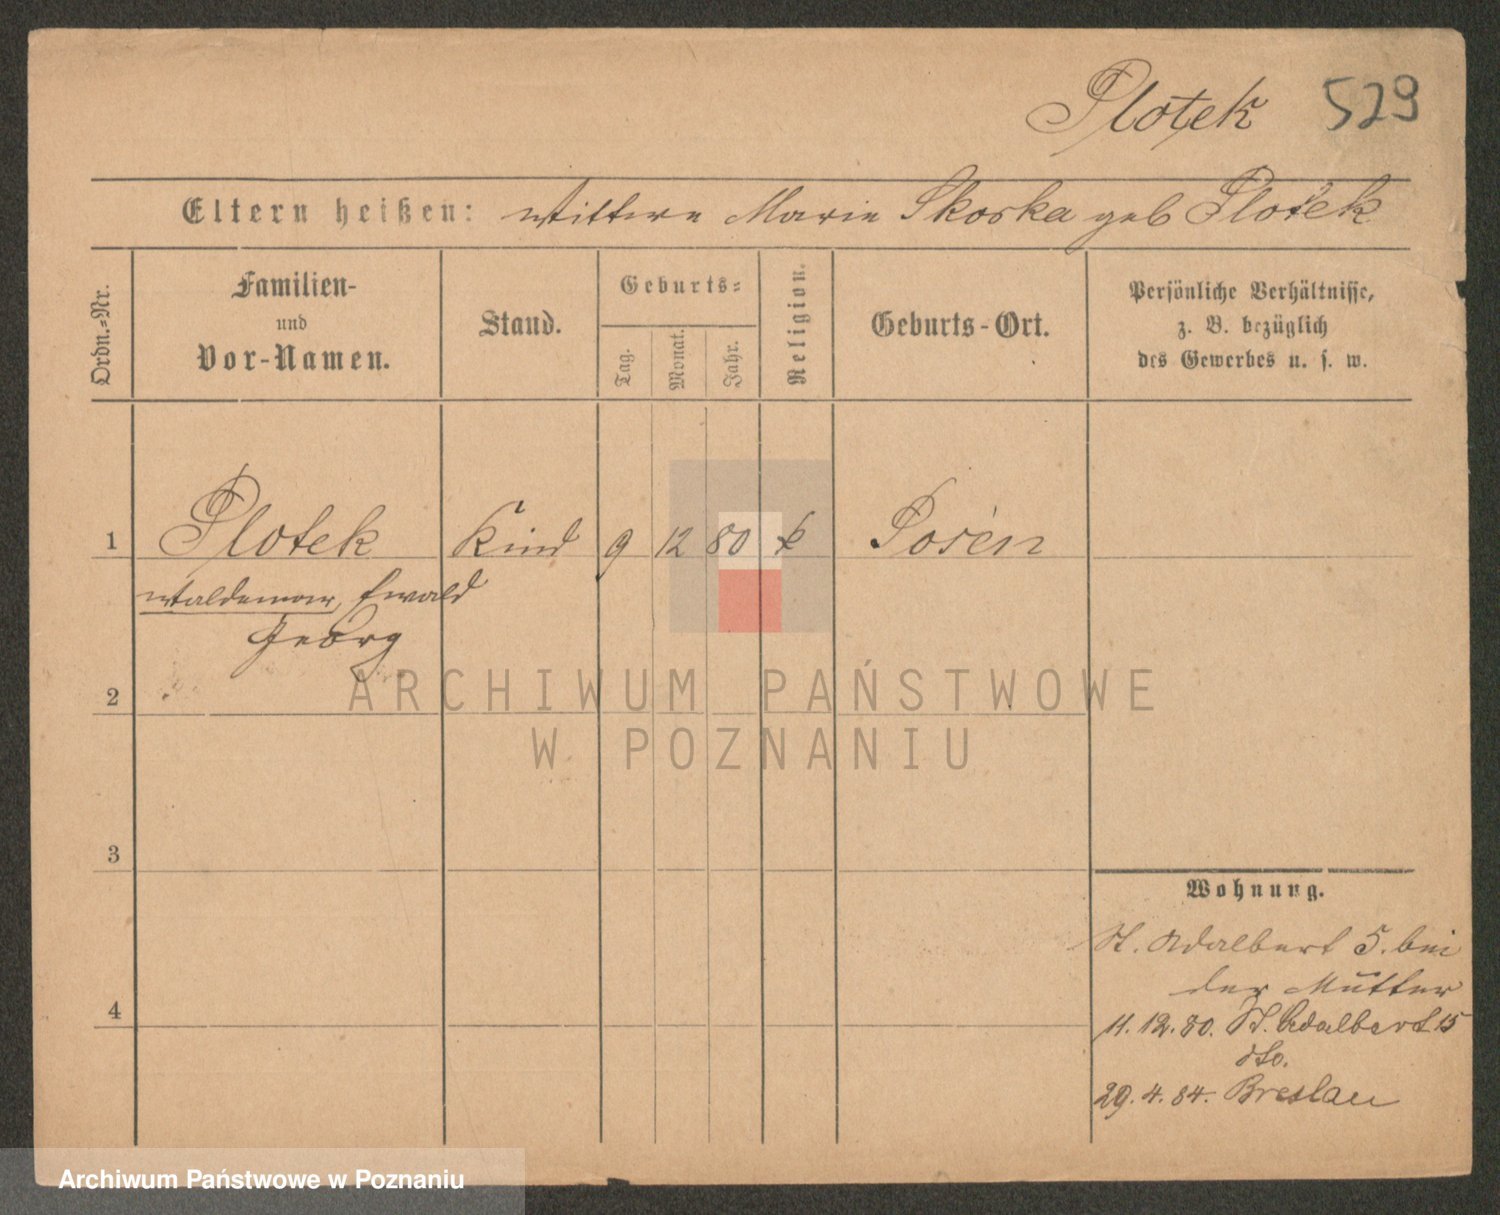 Plotek 529
Eltern heißen: Wittwe Marie Skorska geb Plotek
Ordn.=Nr.
Familien-
und
Vor-Namen.
Stand.
Geburts=
Tag.
Monat.
Jahr.
Religion.
Geburts-Ort.
Persönliche Verhältnisse,
z. B. bezüglich
des Gewerbes u. s. w.
1 Plotek Kind 9 12 80 k Posen
Waldemar, Ewald
Georg
2
3
4
Wohnung.
St. Adalbert 5. bei
der Mutter
11.12.80. St. Adalbert 15
dto.
29.4.84. Breslau
ARCHIWUM PAŃSTWOWE
W POZNANIU
Archiwum Państwowe w Poznaniu